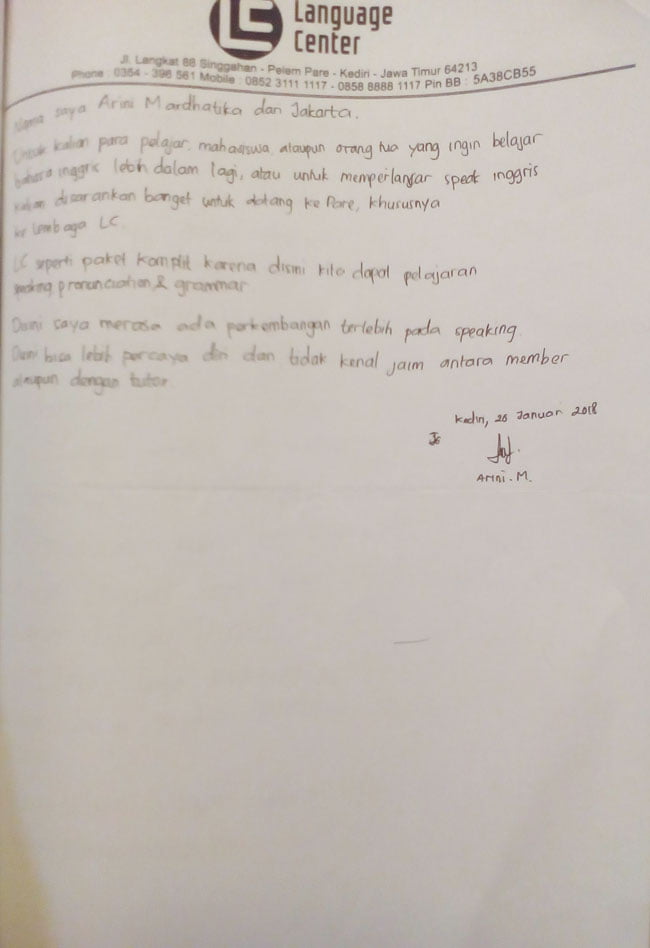 LC
Language
Center
Jl. Langkat 88 Singgahan - Pelem Pare - Kediri - Jawa Timur 64213
Phone : 0354 - 396 561 Mobile : 0852 3111 1117 - 0858 8888 1117 Pin BB : 5A38CB55
Nama saya Arini Mardhatika dari Jakarta.
Untuk kalian para pelajar, mahasiswa, ataupun orang tua yang ingin belajar
bahasa inggris lebih dalam lagi, atau untuk memperlancar speak inggris
kalian disarankan banget untuk datang ke Pare, khususnya
ke lembaga LC.
LC seperti paket komplit karena disini kita dapat pelajaran
speaking, pronunciation, & grammar
Disini saya merasa ada perkembangan terlebih pada speaking.
Disini bisa lebih percaya diri dan tidak kenal jaim antara member
ataupun dengan tutor.
Kediri, 26 Januari 2018
Arini . M.